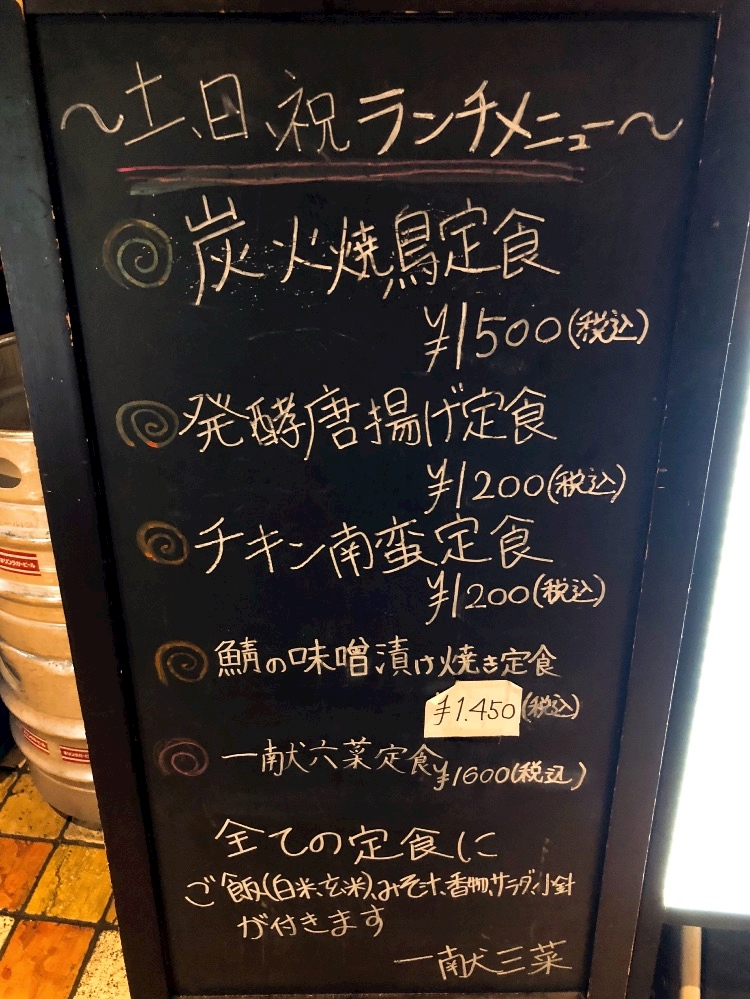 ～土、日、祝 ランチメニュー～
炭火焼鳥定食
¥1500(税込)
発酵唐揚げ定食
¥1200(税込)
チキン南蛮定食
¥1200(税込)
鯖の味噌漬け焼き定食
¥1.450(税込)
一献六菜定食¥1600(税込)
全ての定食に
ご飯(白米、玄米)、みそ汁、香物、サラダ、小鉢
が付きます
一献三菜
キリンラガービール